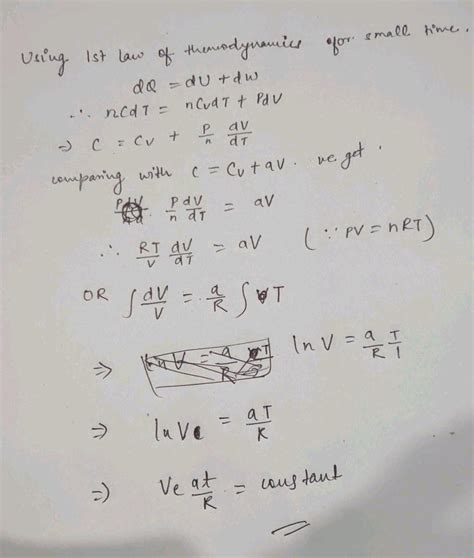 Using 1st law of themodynamics for small time.
dQ = dU + dw
∴ nCdT = nCvdT + PdV
⇒ C = Cv + P/n dV/dT
comparing with C = Cv + aV. we get.
P/n dV/dT = aV
∴ RT/V dV/dT = aV (∵ PV = nRT)
OR ∫ dV/V = a/R ∫ VT
⇒ ln V = a/R T/1
⇒ ln V = aT/R
⇒ Ve at/R = constant